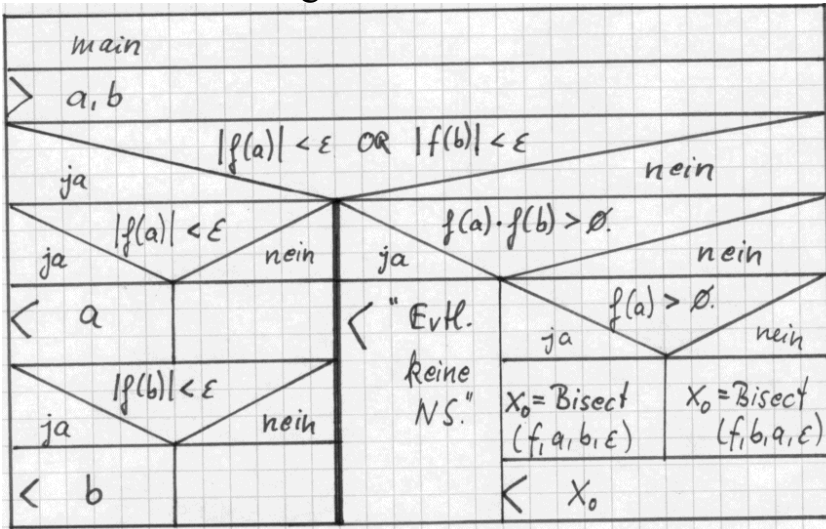 main
> a, b
|f(a)| < ε OR |f(b)| < ε
ja
nein
|f(a)| < ε
ja
nein
< a
|f(b)| < ε
ja
nein
< b
f(a)·f(b) > 0.
ja
nein
< "Evtl.
keine
NS."
f(a) > 0.
ja
nein
X₀ = Bisect
(f, a, b, ε)
X₀ = Bisect
(f, b, a, ε)
< X₀